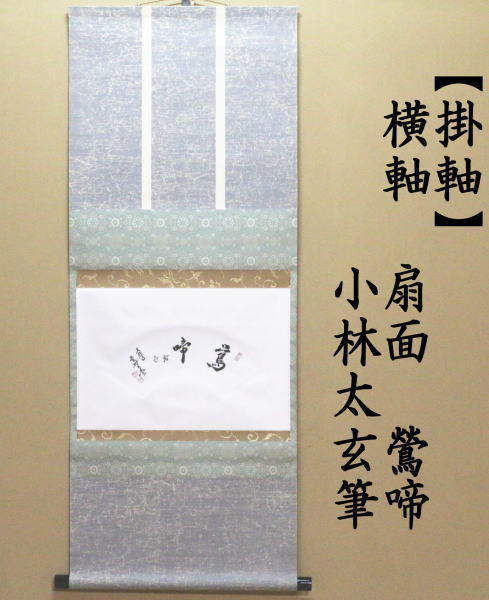 【掛軸】
横軸
扇面 鶯啼
小林太玄筆
鶯啼